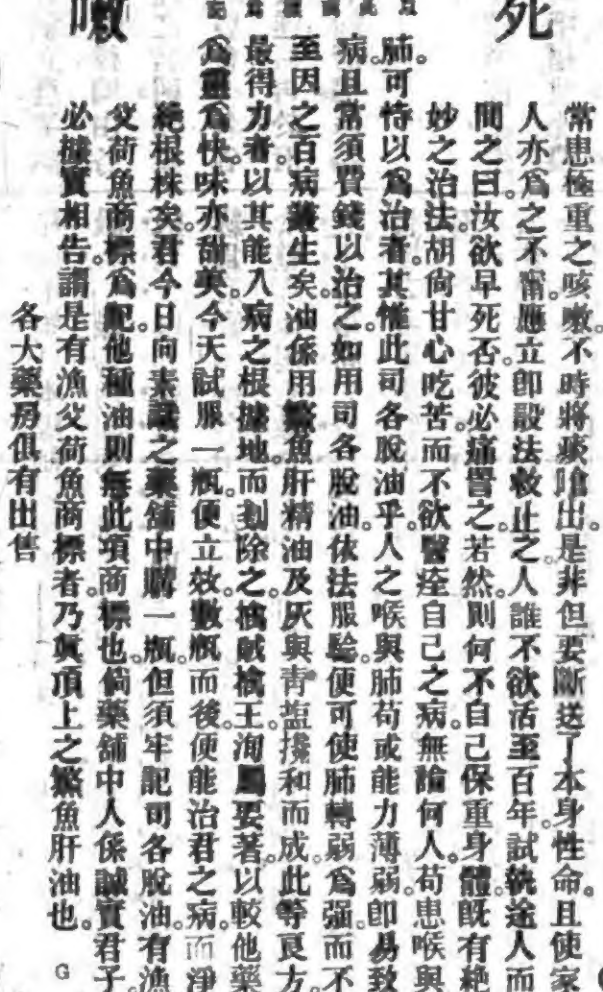 死
嗽
常患極重之咳嗽不時將痰嗆出。是非但要斷送了本身性命。且使家
人亦為之不甯。應立即設法救止之。人誰不欲活至百年。試執途人而
問之曰。汝欲早死否。彼必痛詈之。若然。則何不自己保重身體。既有絶
妙之治法。胡尙甘心吃苦。而不欲醫痊自己之病。無論何人。苟患喉與
肺。可恃以為治者。其惟此司各脫油乎。人之喉與肺苟或能力薄弱。即易致
病。且常須費錢以治之。如用司各脫油。依法服騐。便可使肺轉弱為强。而不
至因之百病叢生矣。油係用鰵魚肝精油及灰與青塩攙和而成。此等良方。
最得力者。以其能入病之根據地。而剗除之。擒賊擒王。洵屬要著。以較他藥
為靈為快。味亦甜美。今天試服一瓶。便立效。數瓶而後。便能治君之病。而淨
絶根株矣。君今日向素識之藥舖中購一瓶。但須牢記司各脫油。有漁
父荷魚商標為記。他種油則無此項商標也。倘藥舖中人係誠實君子。
必據實相告。謂是有漁父荷魚商標者。乃真頂上之鰵魚肝油也。
各大藥房俱有出售
G